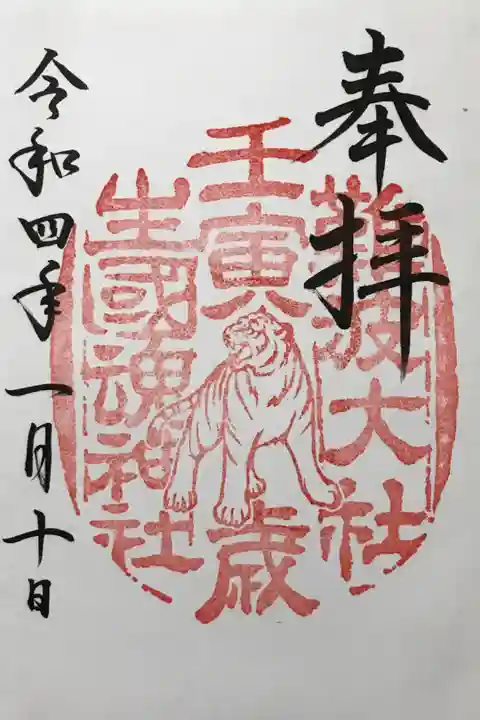 奉拝
難波大社
壬寅歳
生國魂神社
令和四年一月十日